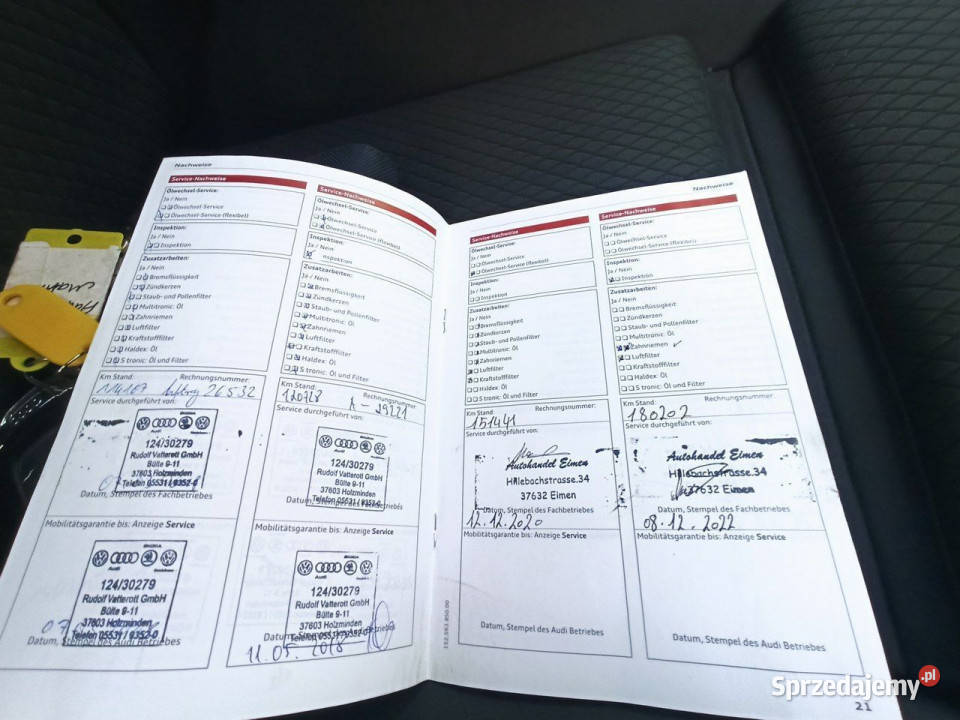 Nachweise
Service-Nachweise
Ölwechsel-Service:
Ja / Nein
Ölwechsel-Service
Ölwechsel-Service (flexibel)
Inspektion:
Ja / Nein
Inspektion
Zusatzarbeiten:
Ja / Nein
Bremsflüssigkeit
Zündkerzen
Staub- und Pollenfilter
Multitronic: Öl
Zahnriemen
Luftfilter
Kraftstofffilter
Haldex: Öl
S tronic: Öl und Filter
Km Stand:
Rechnungsnummer:
26532
Service durchgeführt von:
Audi
124/30279
Rudolf Vatterott GmbH
Bülte 9-11
37603 Holzminden
Telefon 05531 / 9352-0
Datum, Stempel des Fachbetriebes
Mobilitätsgarantie bis: Anzeige Service
Audi
124/30279
Rudolf Vatterott GmbH
Bülte 9-11
37603 Holzminden
Telefon 05531 / 9352-0
Datum, Stempel des Audi Betriebes
Service-Nachweise
Ölwechsel-Service:
Ja / Nein
Ölwechsel-Service
Ölwechsel-Service (flexibel)
Inspektion:
Ja / Nein
nspektion
Zusatzarbeiten:
Ja / Nein
Bremsflüssigkeit
Zündkerzen
Staub- und Pollenfilter
Multitronic: Öl
Zahnriemen
Luftfilter
Kraftstofffilter
Haldex: Öl
S tronic: Öl und Filter
Km Stand:
Rechnungsnummer:
Service durchgeführt von:
Audi
124/30279
Rudolf Vatterott GmbH
Bülte 9-11
37603 Holzminden
Telefon 05531 / 9352-0
Datum, Stempel des Fachbetriebes
Mobilitätsgarantie bis: Anzeige Service
Audi
124/30279
Rudolf Vatterott GmbH
Bülte 9-11
37603 Holzminden
Telefon 05531 / 9352-0
Datum, Stempel des Audi Betriebes
11.05.2018
Nachweise
Service-Nachweise
Ölwechsel-Service:
Ja / Nein
Ölwechsel-Service
Ölwechsel-Service (flexibel)
Inspektion:
Ja / Nein
Inspektion
Zusatzarbeiten:
Ja / Nein
Bremsflüssigkeit
Zündkerzen
Staub- und Pollenfilter
Multitronic: Öl
Zahnriemen
Luftfilter
Kraftstofffilter
Haldex: Öl
S tronic: Öl und Filter
Km Stand:
Rechnungsnummer:
151441
Service durchgeführt von:
Autohandel Eimen
Hillebachstrasse.34
37632 Eimen
Datum, Stempel des Fachbetriebes
12.12.2020
Mobilitätsgarantie bis: Anzeige Service
Datum, Stempel des Audi Betriebes
152.5R2.850.00
Service-Nachweise
Ölwechsel-Service:
Ja / Nein
Ölwechsel-Service
Ölwechsel-Service (flexibel)
Inspektion:
Ja / Nein
Inspektion
Zusatzarbeiten:
Ja / Nein
Bremsflüssigkeit
Zündkerzen
Staub- und Pollenfilter
Multitronic: Öl
Zahnriemen
Luftfilter
Kraftstofffilter
Haldex: Öl
S tronic: Öl und Filter
Km Stand:
Rechnungsnummer:
180202
Service durchgeführt von:
Autohandel Eimen
Hillebachstrasse.34
37632 Eimen
Datum, Stempel des Fachbetriebes
08.12.2022
Mobilitätsgarantie bis: Anzeige Service
Datum, Stempel des Audi Betriebes
21
Sprzedajemy.pl